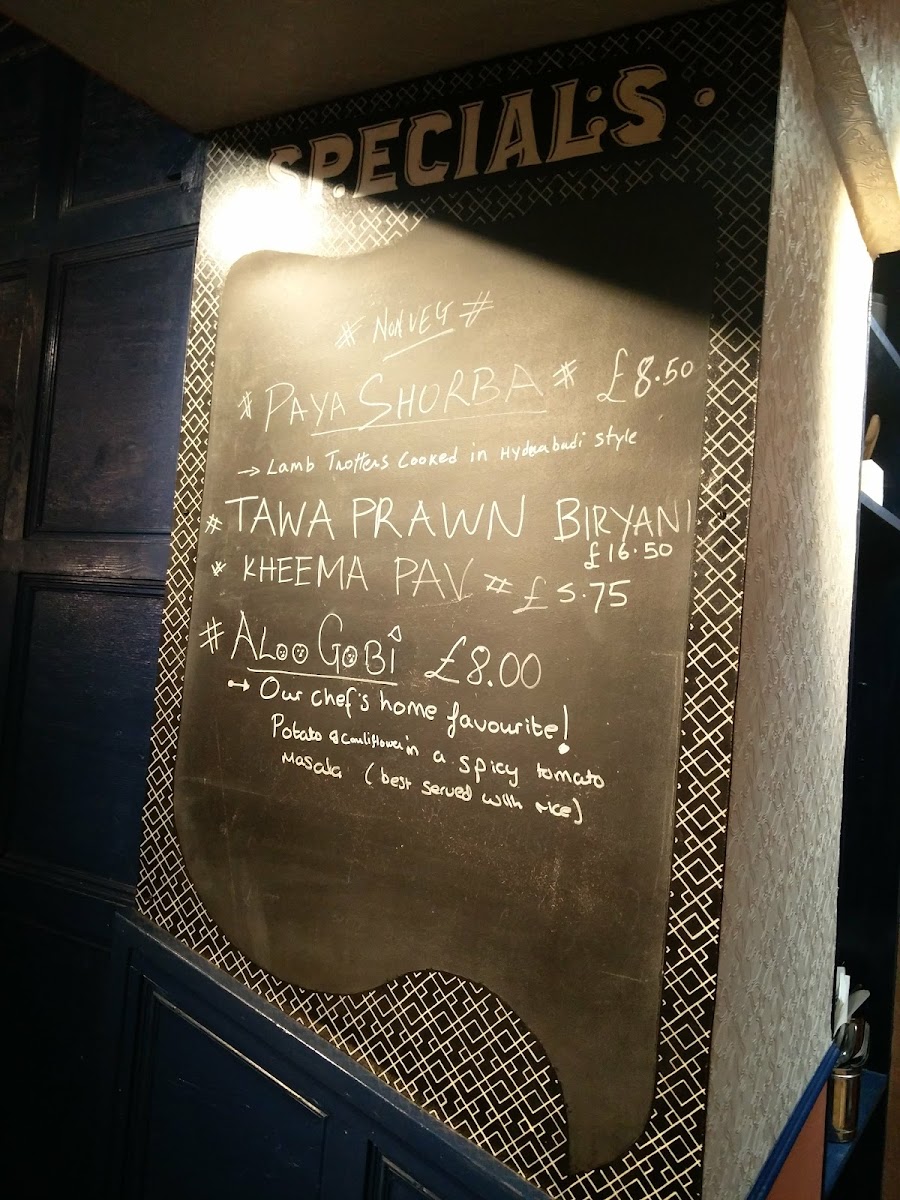 SPECIALS
# NONVEG #
# PAYA SHORBA # £8.50
→ Lamb Trotters Cooked in Hyderabadi style
# TAWA PRAWN BIRYANI
£16.50
# KHEEMA PAV # £5.75
# ALOO GOBI £8.00
→ Our chef's home favourite!
Potato & Cauliflower in a spicy tomato
masala (best served with rice)